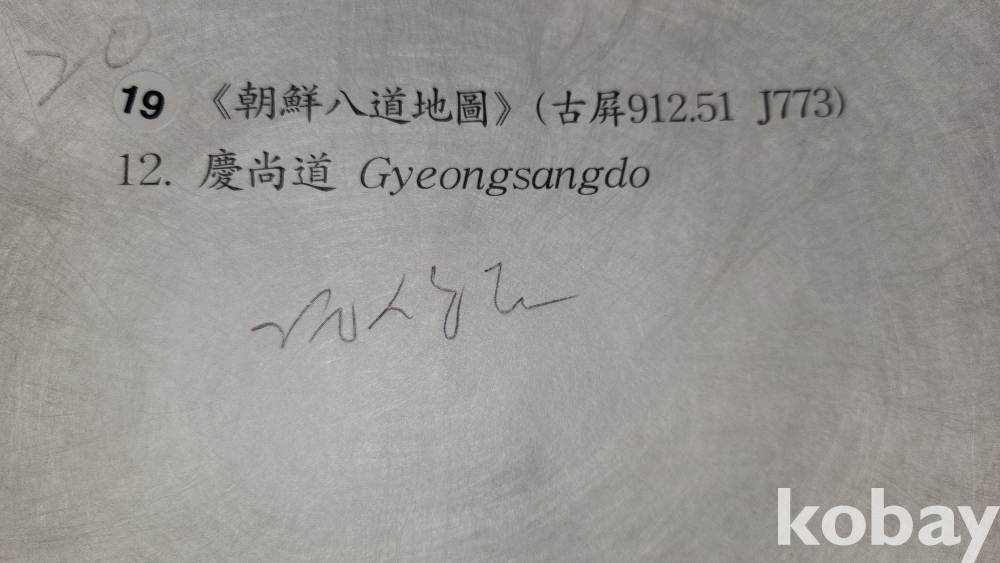 20
19 《朝鮮八道地圖》(古屏912.51 J773)
12. 慶尚道 Gyeongsangdo
경상도
kobay